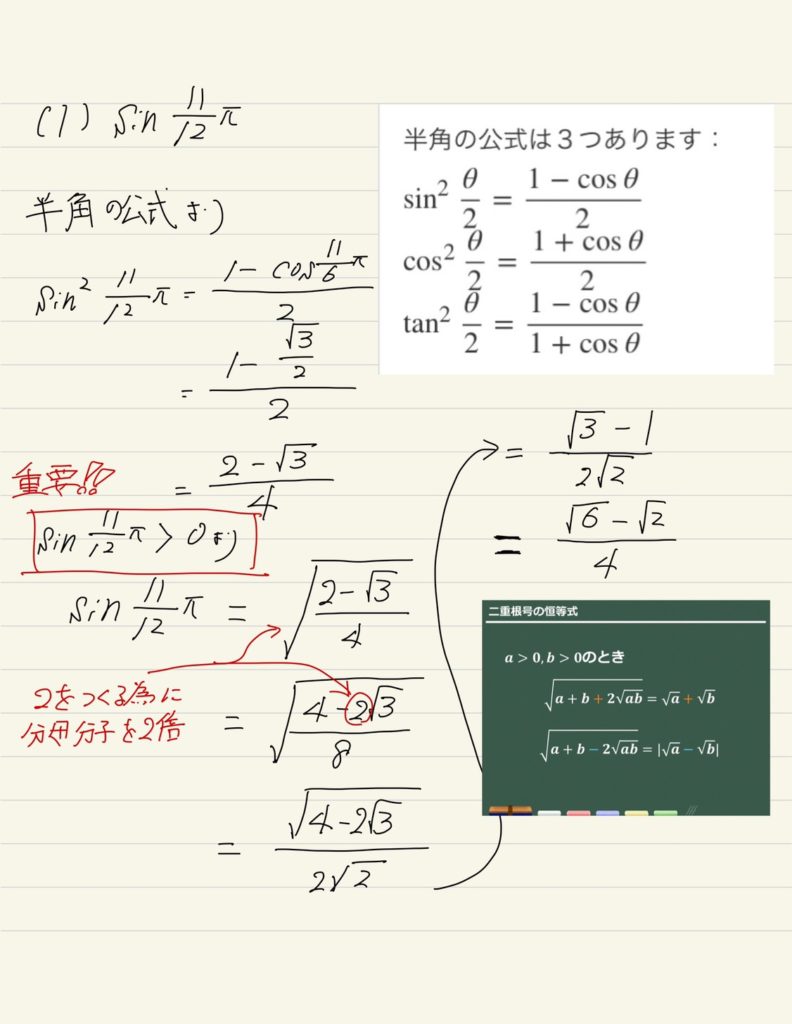 (1) sin 11/12 π
半角の公式より
sin² 11/12 π = (1 - cos 11/6 π)/2
= (1 - √3/2)/2
= (2 - √3)/4
重要!!
sin 11/12 π > 0 より
sin 11/12 π = √((2 - √3)/4)
2をつくる為に
分母分子を2倍
= √((4 - 2√3)/8)
= √(4 - 2√3)/(2√2)
半角の公式は3つあります：
sin² θ/2 = (1 − cos θ)/2
cos² θ/2 = (1 + cos θ)/2
tan² θ/2 = (1 − cos θ)/(1 + cos θ)
= (√3 - 1)/(2√2)
= (√6 - √2)/4
二重根号の恒等式
a > 0, b > 0のとき
√(a + b + 2√(ab)) = √a + √b
√(a + b − 2√(ab)) = |√a − √b|